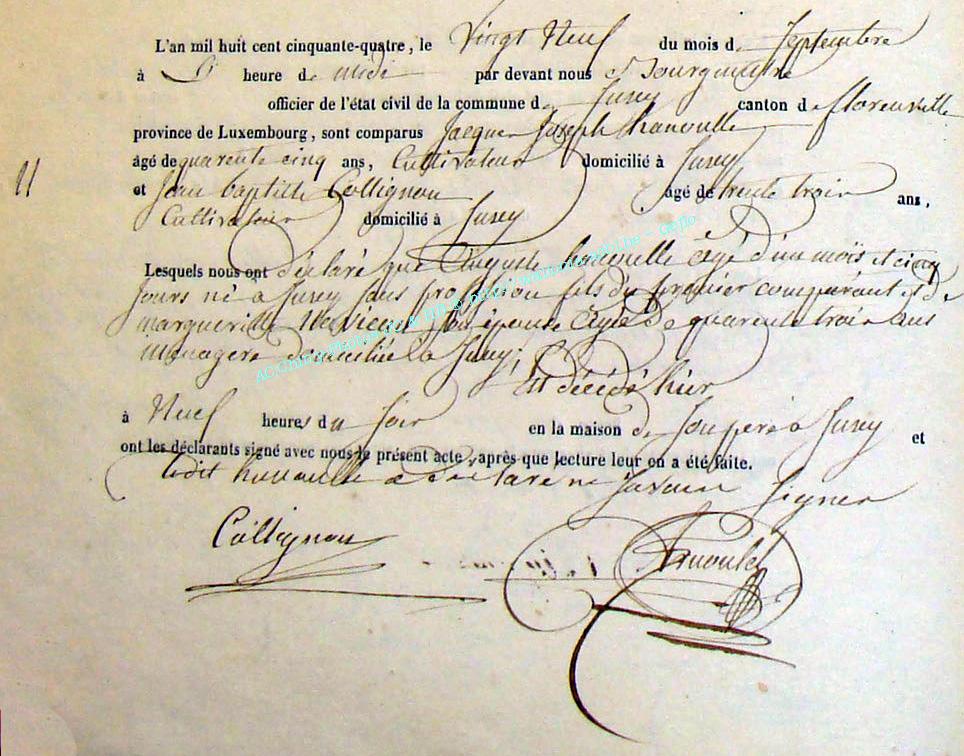 L'an mil huit cent cinquante-quatre, le Vingt Neuf du mois de Septembre
à heure de midi par devant nous Bourgmestre
officier de l'état civil de la commune de Jusey canton de florenville
province de Luxembourg, sont comparus Jacques Joseph hanoulle
âgé de quarente cinq ans, Cultivateur domicilié à Jusey
11 et Jean baptiste Collignon âgé de trente trois ans,
Cultivateur domicilié à Jusey
Lesquels nous ont déclaré que Auguste hanoulle âgé d'un mois et cinq
jours né à Jusey sans profession fils du premier comparant et de
margueritte son épouse âgée de quarente trois ans
menagere domiciliée à Jusey;
Est décédé hier
à Neuf heures du soir en la maison de son pere à Jusey et
ont les déclarants signé avec nous le présent acte après que lecture leur en a été faite.
ledit hanoulle a déclaré ne savoir signer
Collignon